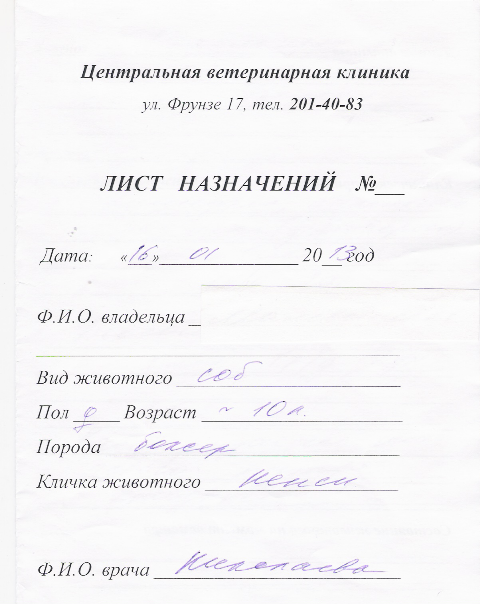 Центральная ветеринарная клиника
ул. Фрунзе 17, тел. 201-40-83
ЛИСТ НАЗНАЧЕНИЙ №___
Дата: «16» 01 2013 год
Ф.И.О. владельца _
Вид животного соб
Пол ♀ Возраст ~ 10 л.
Порода боксер
Кличка животного Ненси
Ф.И.О. врача